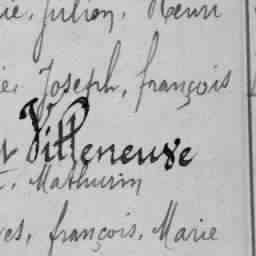 ie, Julien, Henri
ie, Joseph, françois
Villeneuse
t, Mathurin
es, françois, Marie